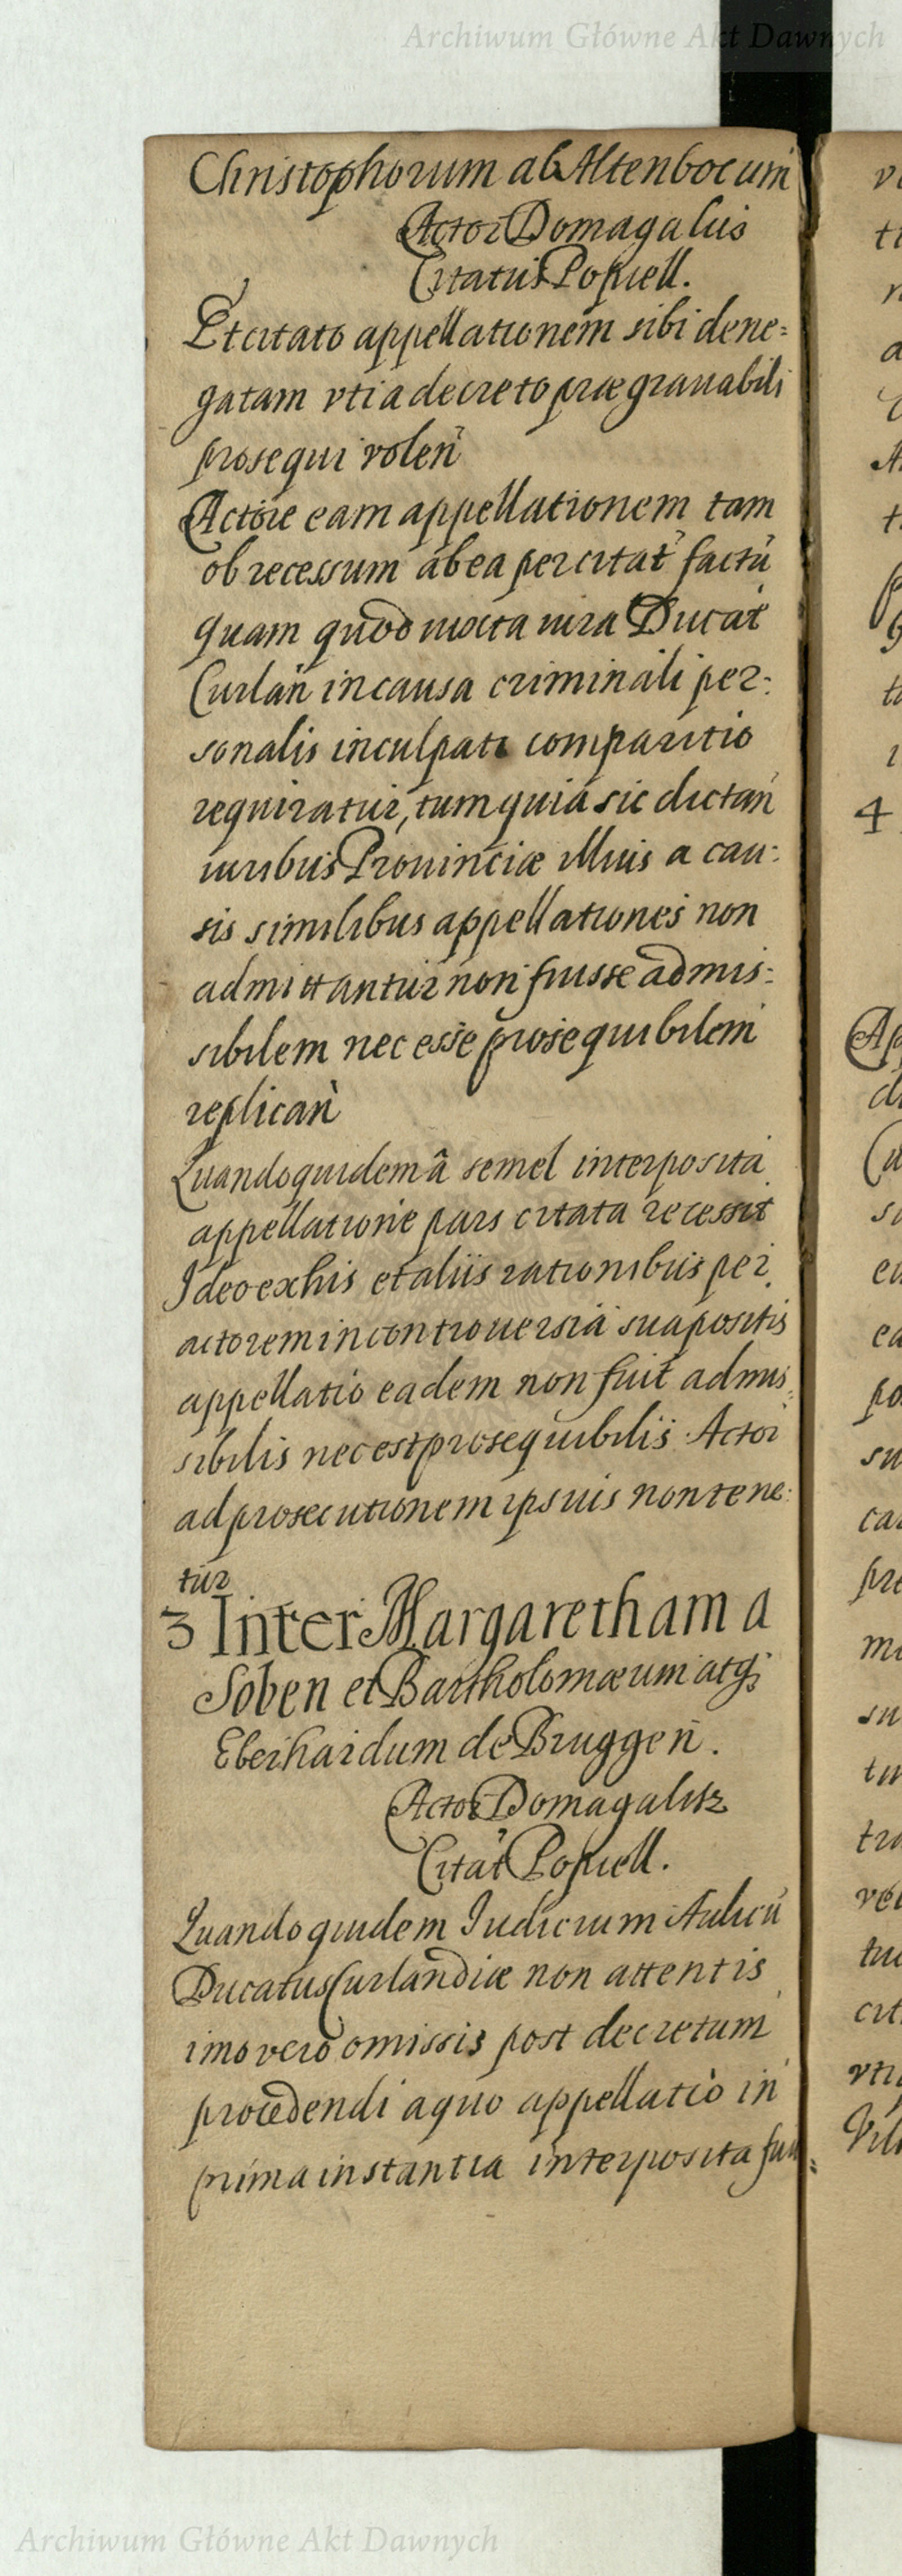 Archiwum Główne Akt Dawnych
Christophorum ab Altenbocum
Actor Domagalius
Citatus Popiell.
Et citato appellationem sibi dene=
gatam vti a decreto prægrauabili
prosequi volen̄
Actore eam appellationem tam
ob recessum ab ea per citat̄ factū
quam quod iuxta iura Ducat̄
Curlan̄ in causa criminali per=
sonalis inculpati comparitio
requiratur, tum quia sic dictan̄
iuribus Prouinciæ illius a cau=
sis similibus appellationes non
admittantur non fuisse admis=
sibilem nec esse prosequibilem
replican̄
Quandoquidem â semel interposita
appellatione pars citata recessit
Ideo ex his et aliis rationibus per
actorem in controuersia sua positis
appellatio eadem non fuit admis=
sibilis nec est prosequibilis Actor
ad prosecutionem ipsius non tene=
tur
3 Inter Margaretham a
Soben et Bartholomæum atq;
Eberhardum de Bruggen.
Actor Domagalisz
Citat̄ Popiell.
Quandoquidem Iudicium Aulicū
Ducatus Curlandiæ non attentis
imo vero omissis post decretum
procedendi a quo appellatio in
prima instantia interposita fui=
4
Archiwum Główne Akt Dawnych